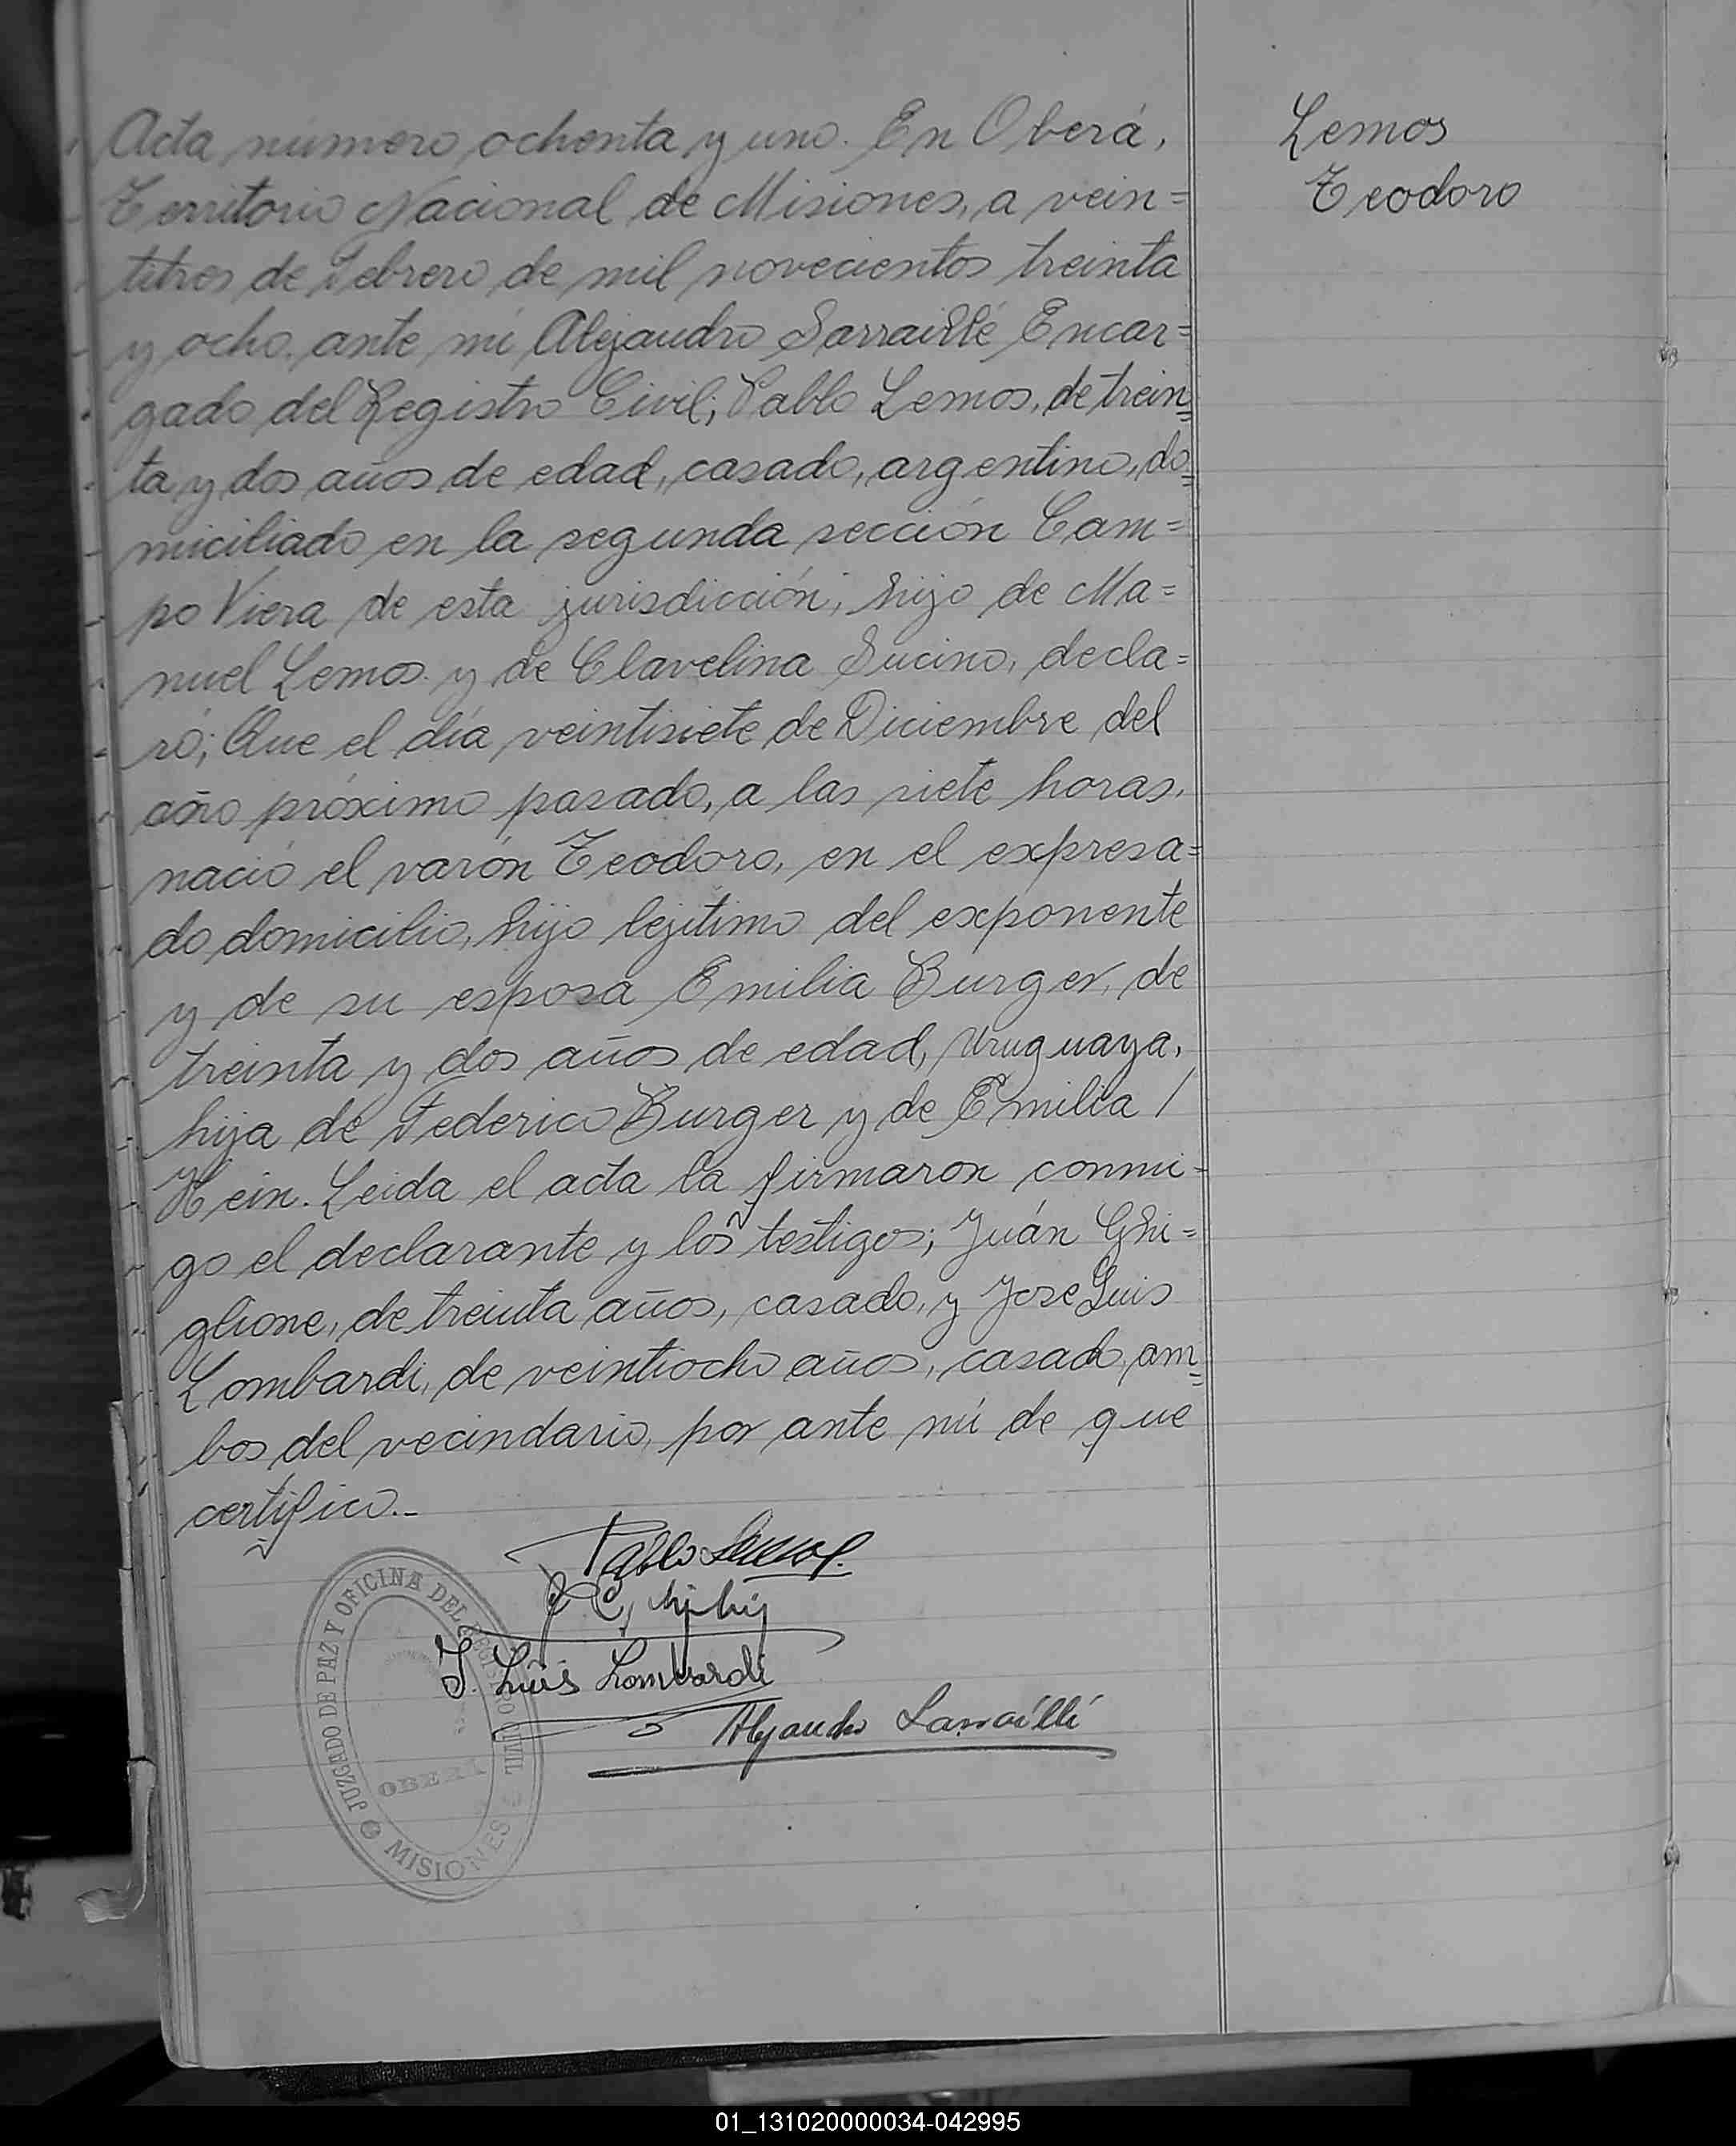 Acta número ochenta y uno. En Oberá,
Territorio Nacional de Misiones, a vein=
titres de Febrero de mil novecientos treinta
y ocho. ante mi Alejandro Sarraillé Encar=
gado del Registro Civil; Pablo Lemos, de trein=
ta y dos años de edad, casado, argentino, do=
miciliado en la segunda sección Cam=
po Viera de esta jurisdicción, hijo de Ma=
nuel Lemos y de Clavelina Sucino, decla=
ró; Que el día veintisiete de Diciembre del
año próximo pasado, a las siete horas,
nació el varón Teodoro, en el expresa=
do domicilio, hijo lejitimo del exponente
y de su esposa Emilia Burger, de
treinta y dos años de edad, Uruguaya,
hija de Federico Burger y de Emilia /
Hein. Leida el acta la firmaron conmi-
go el declarante y los testigos; Juán Ghi=
glione, de treinta años, casado, y Jose Luis
Lombardi, de veintiocho años, casado, am=
bos del vecindario, por ante mi de que
certifico._
Pablo Lemos.
J. Luis Lombardi
Alejandro Sarraillé
JUZGADO DE PAZ Y OFICINA DEL REGISTRO CIVIL
OBERÁ
MISIONES
Lemos
Teodoro
01_131020000034-042995